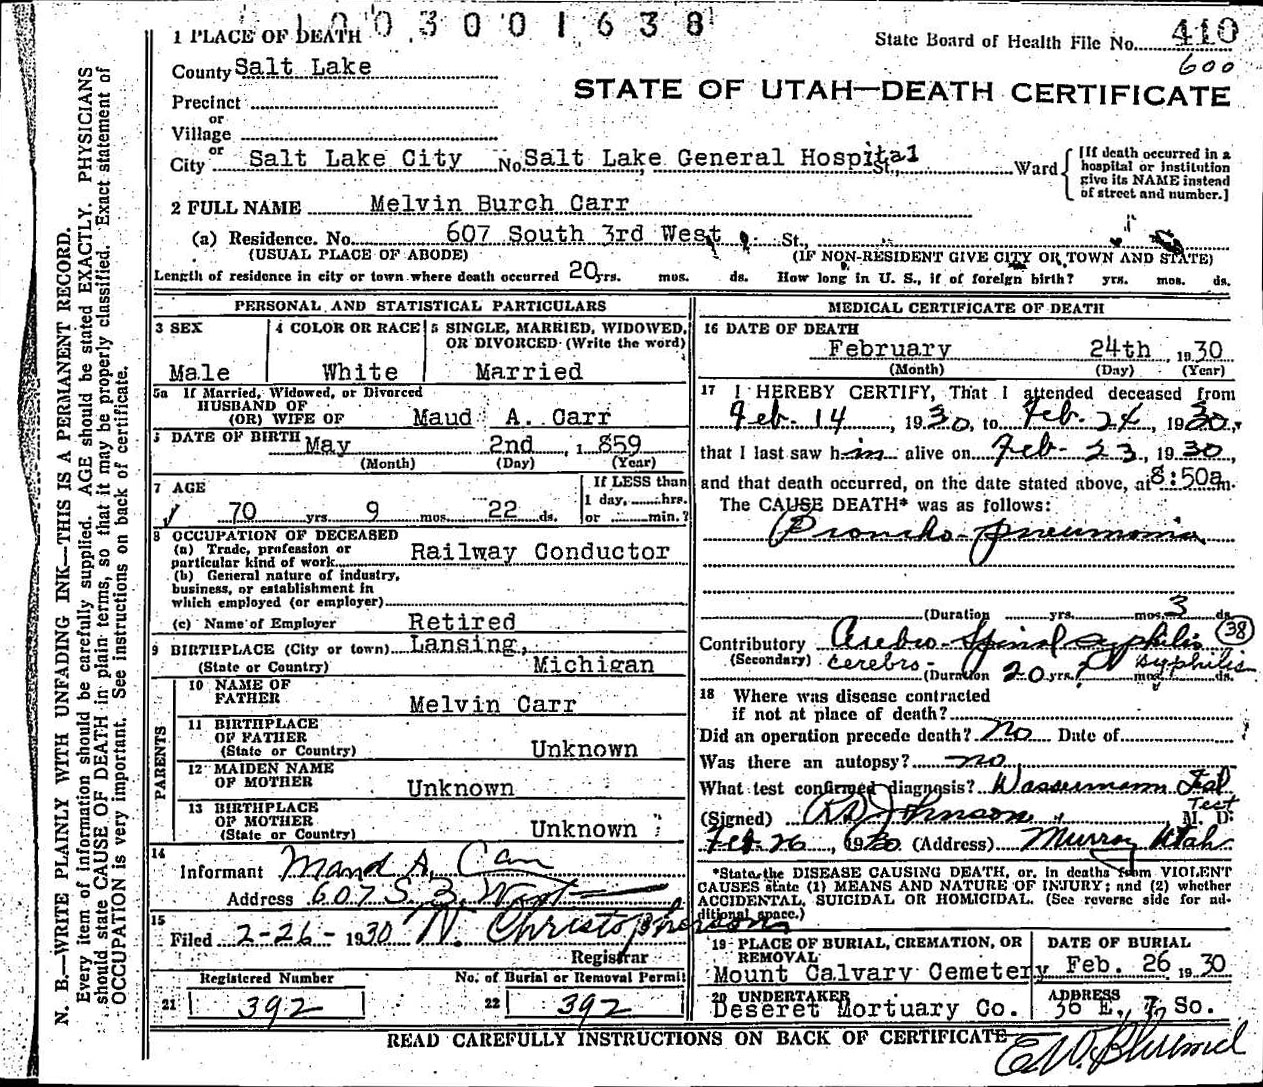 1003001638
1 PLACE OF DEATH
State Board of Health File No. 410
600
County Salt Lake
STATE OF UTAH—DEATH CERTIFICATE
Precinct
or
Village
or
City Salt Lake City No. Salt Lake General Hospital St., Ward
[If death occurred in a
hospital or institution
give its NAME instead
of street and number.]
2 FULL NAME Melvin Burch Carr
(a) Residence. No. 607 South 3rd West St.,
(USUAL PLACE OF ABODE) (IF NON-RESIDENT GIVE CITY OR TOWN AND STATE)
Length of residence in city or town where death occurred 20 yrs. mos. ds. How long in U. S., if of foreign birth? yrs. mos. ds.
PERSONAL AND STATISTICAL PARTICULARS
3 SEX
Male
4 COLOR OR RACE
White
5 SINGLE, MARRIED, WIDOWED,
OR DIVORCED (Write the word)
Married
5a If Married, Widowed, or Divorced
HUSBAND OF
(OR) WIFE OF Maud A. Carr
DATE OF BIRTH May 2nd , 1 859
(Month) (Day) (Year)
7 AGE
70 yrs. 9 mos. 22 ds.
If LESS than
1 day, hrs.
or min.?
8 OCCUPATION OF DECEASED
(a) Trade, profession or
particular kind of work Railway Conductor
(b) General nature of industry,
business, or establishment in
which employed (or employer)
(c) Name of Employer Retired
9 BIRTHPLACE (City or town) Lansing,
(State or Country) Michigan
PARENTS
10 NAME OF
FATHER Melvin Carr
11 BIRTHPLACE
OF FATHER
(State or Country) Unknown
12 MAIDEN NAME
OF MOTHER Unknown
13 BIRTHPLACE
OF MOTHER
(State or Country) Unknown
14
Informant Maud A. Carr
Address 607 S. 3. West
15
Filed 2-26- 1930 N. Christopherson
Registrar
Registered Number
21 392
No. of Burial or Removal Permit
22 392
MEDICAL CERTIFICATE OF DEATH
16 DATE OF DEATH
February 24th , 1930
(Month) (Day) (Year)
17 I HEREBY CERTIFY, That I attended deceased from
Feb. 14 , 1930, to Feb. 24, 1930,
that I last saw him alive on Feb- 23, 1930,
and that death occurred, on the date stated above, at 8:50a m.
The CAUSE DEATH* was as follows:
Broncho-pneumonia
(Duration yrs. mos. 3 ds.
Contributory Cerebro-Spinal Syphilis 38
(Secondary) cerebro- syphilis
(Duration 20 yrs.? mos. ds.
18 Where was disease contracted
if not at place of death?
Did an operation precede death? no Date of
Was there an autopsy? no
What test confirmed diagnosis? Wassermann
Test
(Signed) Johnson, M. D.
Feb-26 , 1930 (Address) Murray Utah
*State the DISEASE CAUSING DEATH, or, in deaths from VIOLENT
CAUSES state (1) MEANS AND NATURE OF INJURY; and (2) whether
ACCIDENTAL, SUICIDAL OR HOMICIDAL. (See reverse side for ad-
ditional space.)
19 PLACE OF BURIAL, CREMATION, OR
REMOVAL
Mount Calvary Cemetery
DATE OF BURIAL
Feb. 26 1930
20 UNDERTAKER
Deseret Mortuary Co.
ADDRESS
36 E. 7 So.
READ CAREFULLY INSTRUCTIONS ON BACK OF CERTIFICATE
N. B.—WRITE PLAINLY WITH UNFADING INK—THIS IS A PERMANENT RECORD.
Every item of information should be carefully supplied. AGE should be stated EXACTLY. PHYSICIANS
should state CAUSE OF DEATH in plain terms, so that it may be properly classified. Exact statement of
OCCUPATION is very important. See instructions on back of certificate.